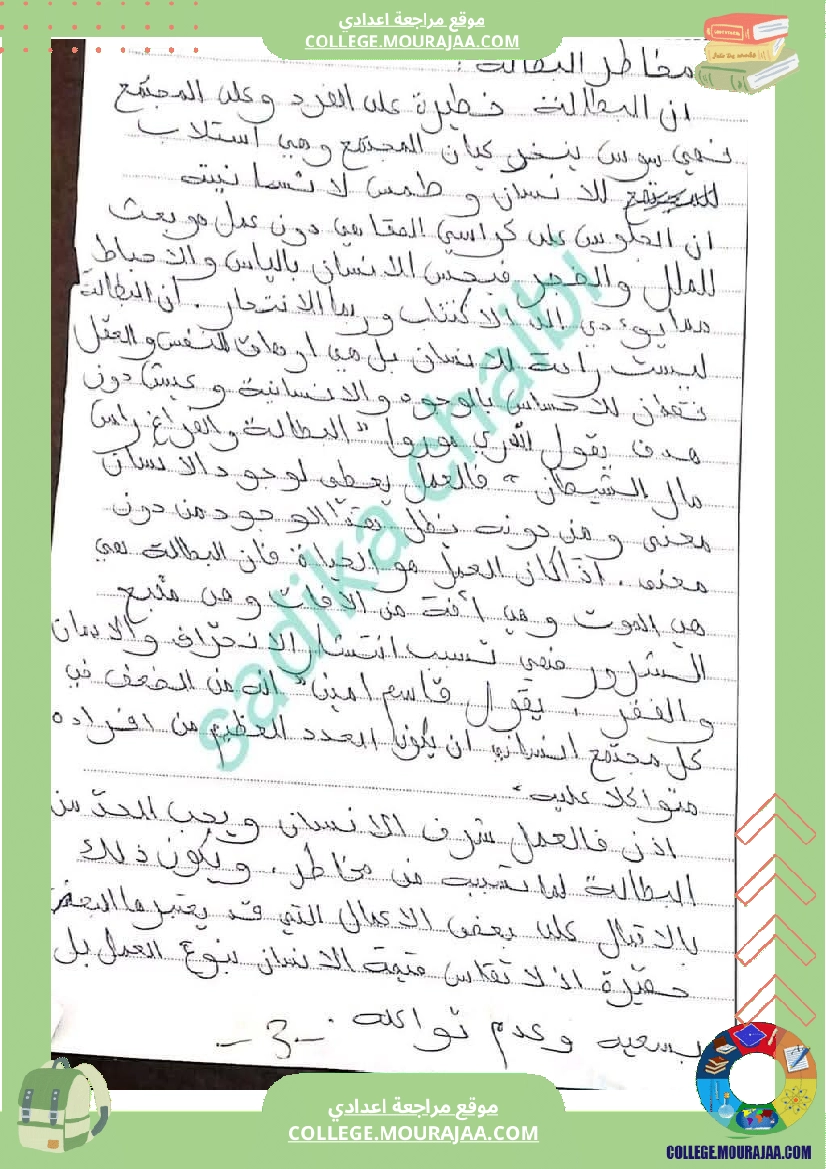 موقع مراجعة اعدادي
COLLEGE.MOURAJAA.COM
مخاطر البطالة :
ان البطالة خطيرة على الفرد وعلى المجتمع
فهي سوس ينخر كيان المجتمع وهي استلاب
للانسان و طمس لانسانيته
ان الجلوس على كراسي المقاهي دون عمل هو بعث
للملل والضجر فيحس الانسان بالياس والاحباط
مما يؤدي الى الاكتئاب وربما الانتحار . ان البطالة
ليست راحة للانسان بل هي ارهاق للنفس والعقل
فقدان للاحساس بالوجود والانسانية وعيش دون
هدف يقول اندري موروا " البطالة والفراغ راس
مال الشيطان " فالعمل يعطي لوجود الانسان
معنى ومن دونه يظل هذا الوجود من دون
معنى . اذا كان العمل هو الحياة فان البطالة هي
هي الموت وهي آفة من الآفات وهي منبع
الشرور فهي تسبب انتشار الانحراف والادمان
والفقر . يقول قاسم امين " انه من الضعف في
كل مجتمع انساني ان يكون العدد العظيم من افراده
متواكلا عليه "
اذن فالعمل شرف الانسان ويجب الحد من
البطالة لما تسببه من مخاطر . ويكون ذلك
بالاقبال على بعض الاعمال التي قد يعتبرها البعض
حقيرة اذ لا تقاس قيمة الانسان بنوع العمل بل
بسعيه وعدم تواكله .
- 3 -
sadika chaibi
موقع مراجعة اعدادي
COLLEGE.MOURAJAA.COM
COLLEGE.MOURAJAA.COM